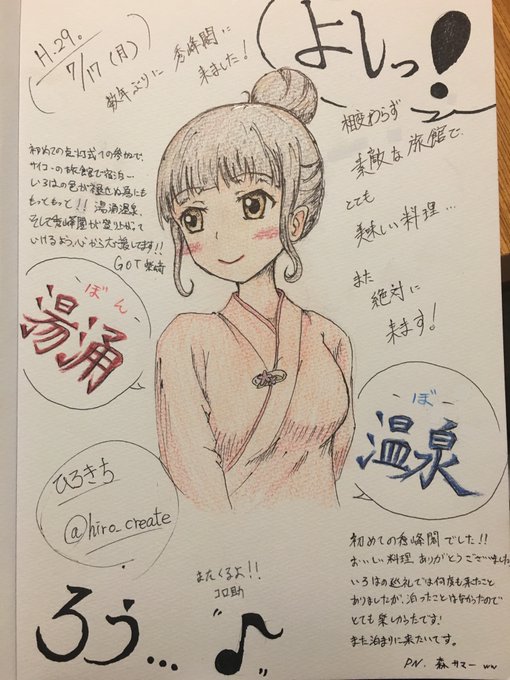 H.29。
7/17(月)
数年ぶりに
秀峰閣に
来ました!
よしっ!
相変わらず
素敵な旅館で
とても
美味しい料理…
また
絶対に
来ます!
初めての点灯式での参加で、
サイコーの旅館で宿泊ー
いろはの色が褪せぬ為にも
もっともっと!!湯涌温泉、
そして秀峰閣が盛り上がって
いけるよう、心から応援してます!!
GOT
-ぼん-
湯涌
-ぼ-
温泉
ひろきち
@hiro_create
またくるよ!!
コロ助
ろう…♪
初めての秀峰閣でした!!
おいしい料理ありがとうございました
いろはの巡礼では何度も来たこと
ありましたが、泊ったことはなかったので
とても楽しかったです!
また泊まりに来たいです。
P.N. 森サマー ww